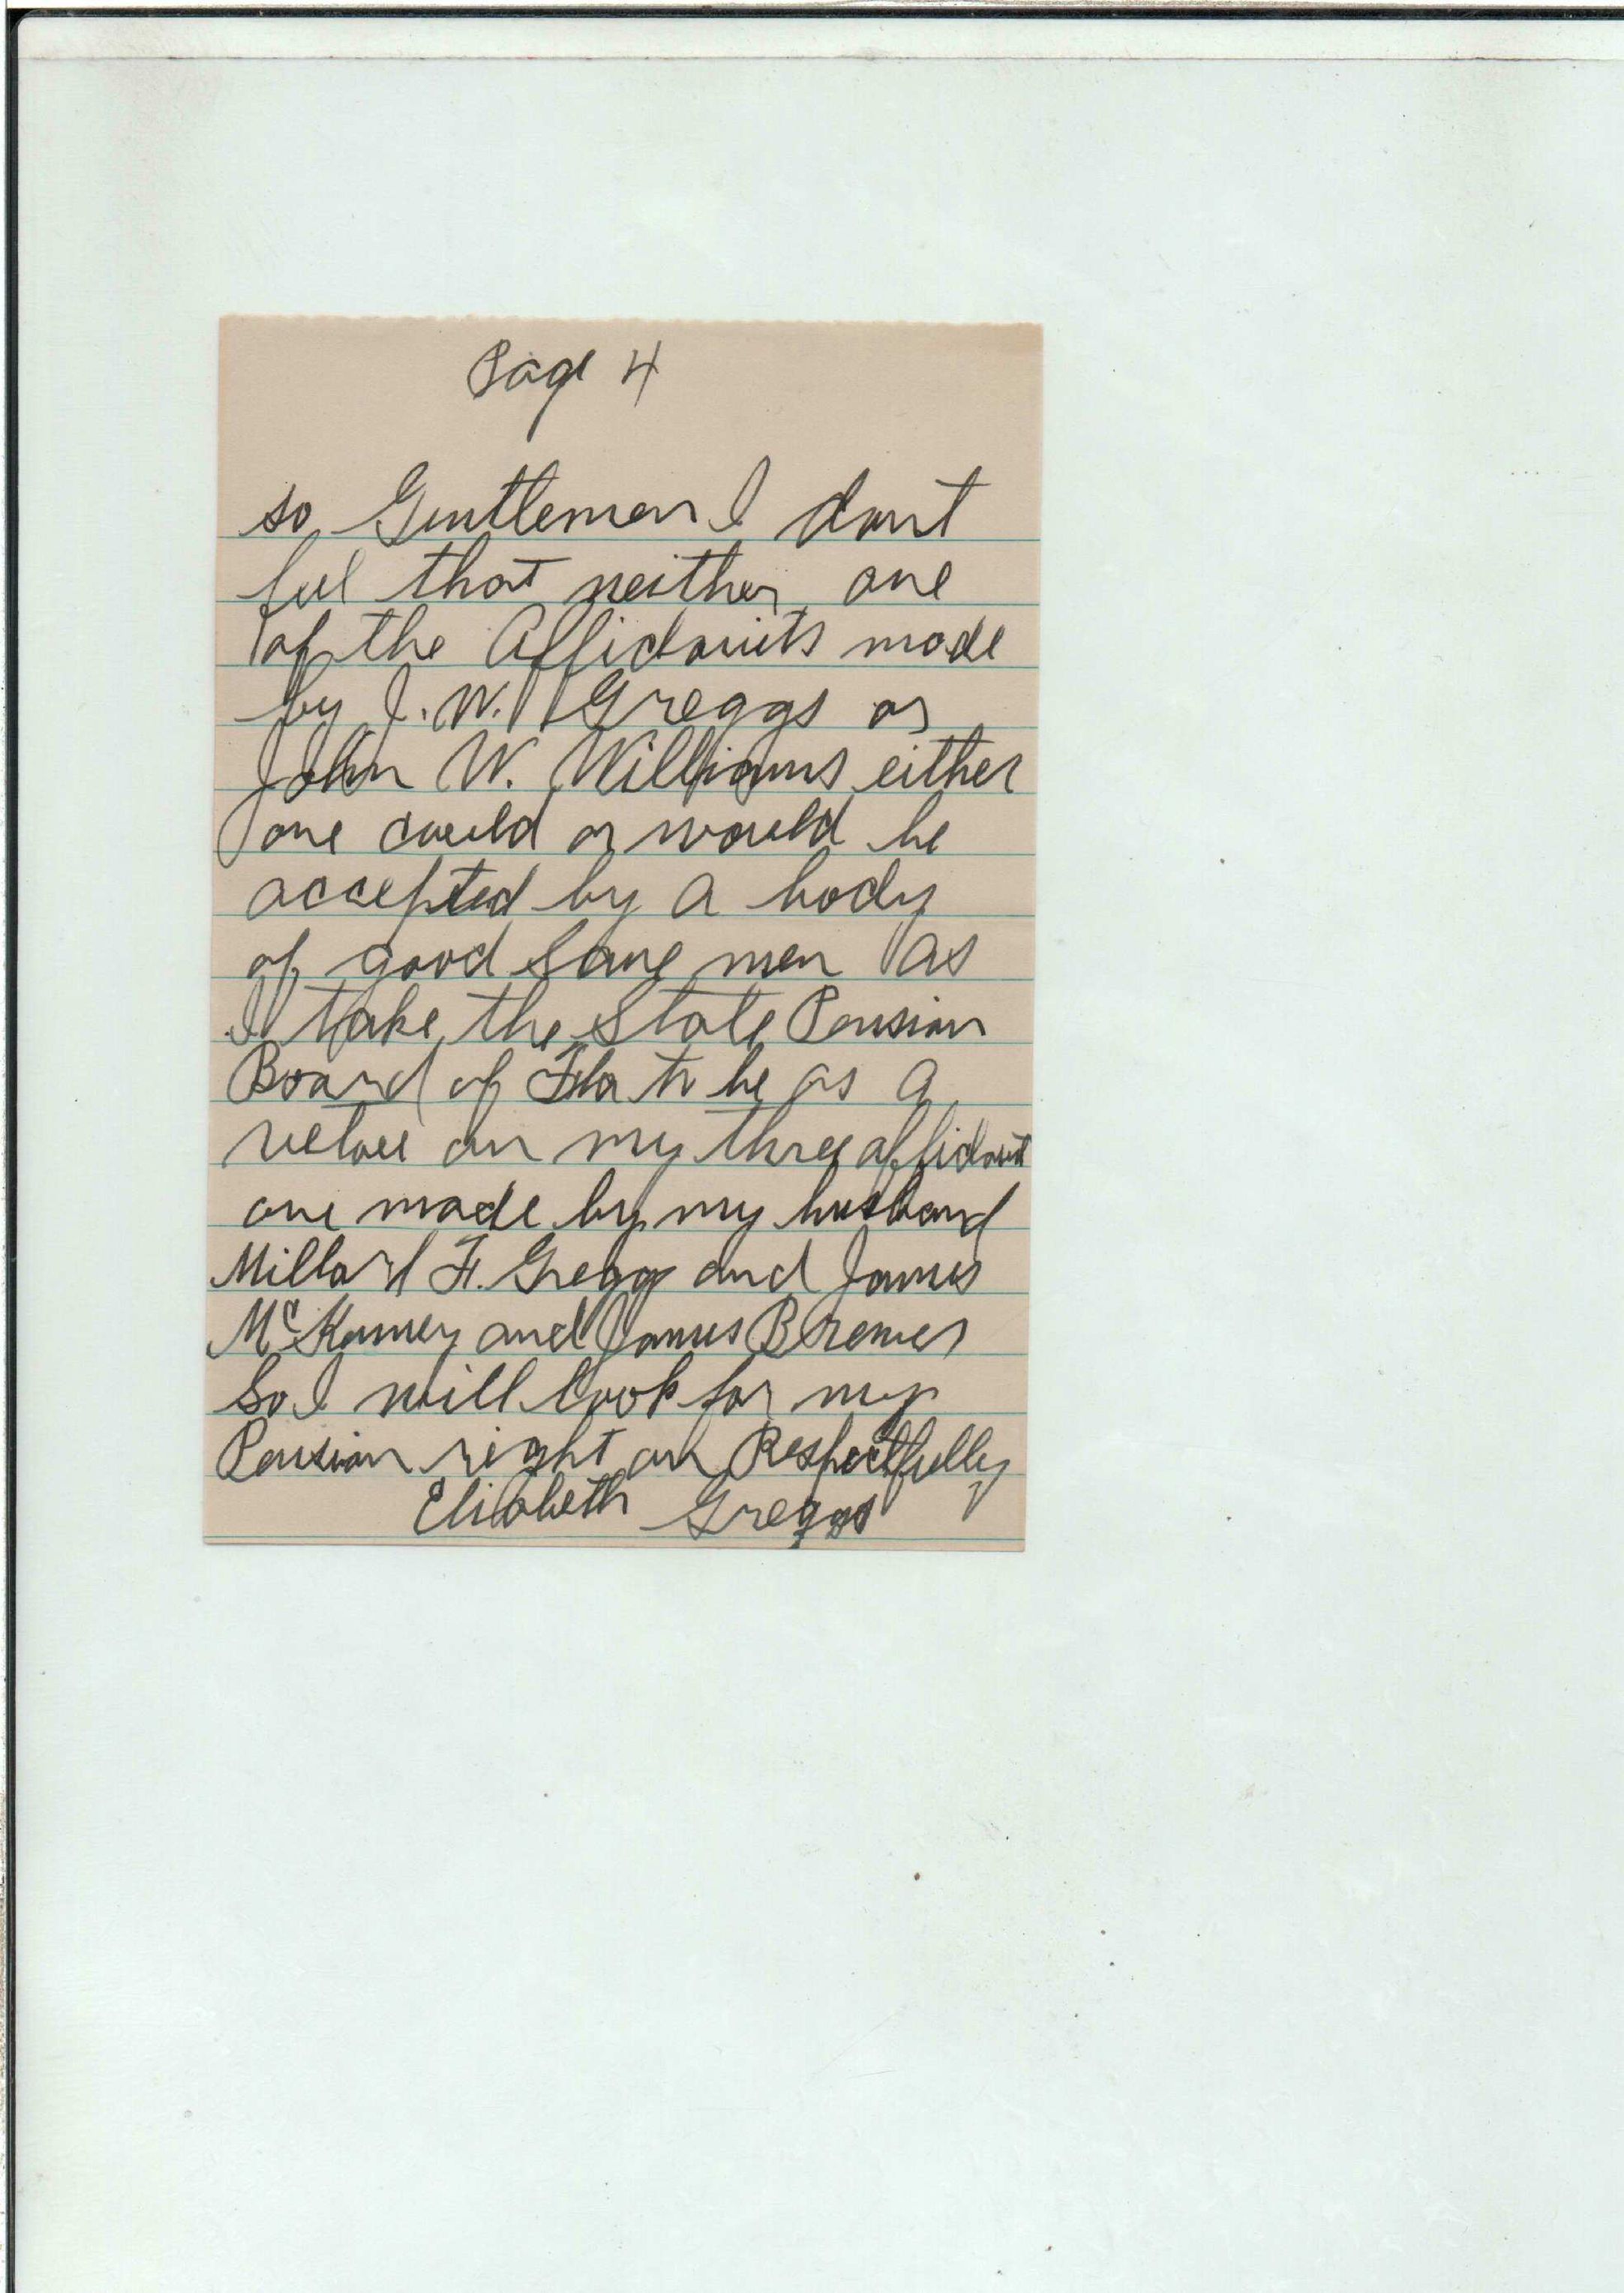 Page 4
so Gentlemen I dont
feel that neither one
of the Affidavits made
by J. W. Greggs or
John W. Williams either
one could or would be
accepted by a body
of good Sane men as
I take the State Pension
Board of Fla to be as a
on my three affidavit
one made by my husband
Millard F. Gregg and James
McKamey and James Brewer
So I will look for my
Pension right on Respectfully
Elizabeth Greggs